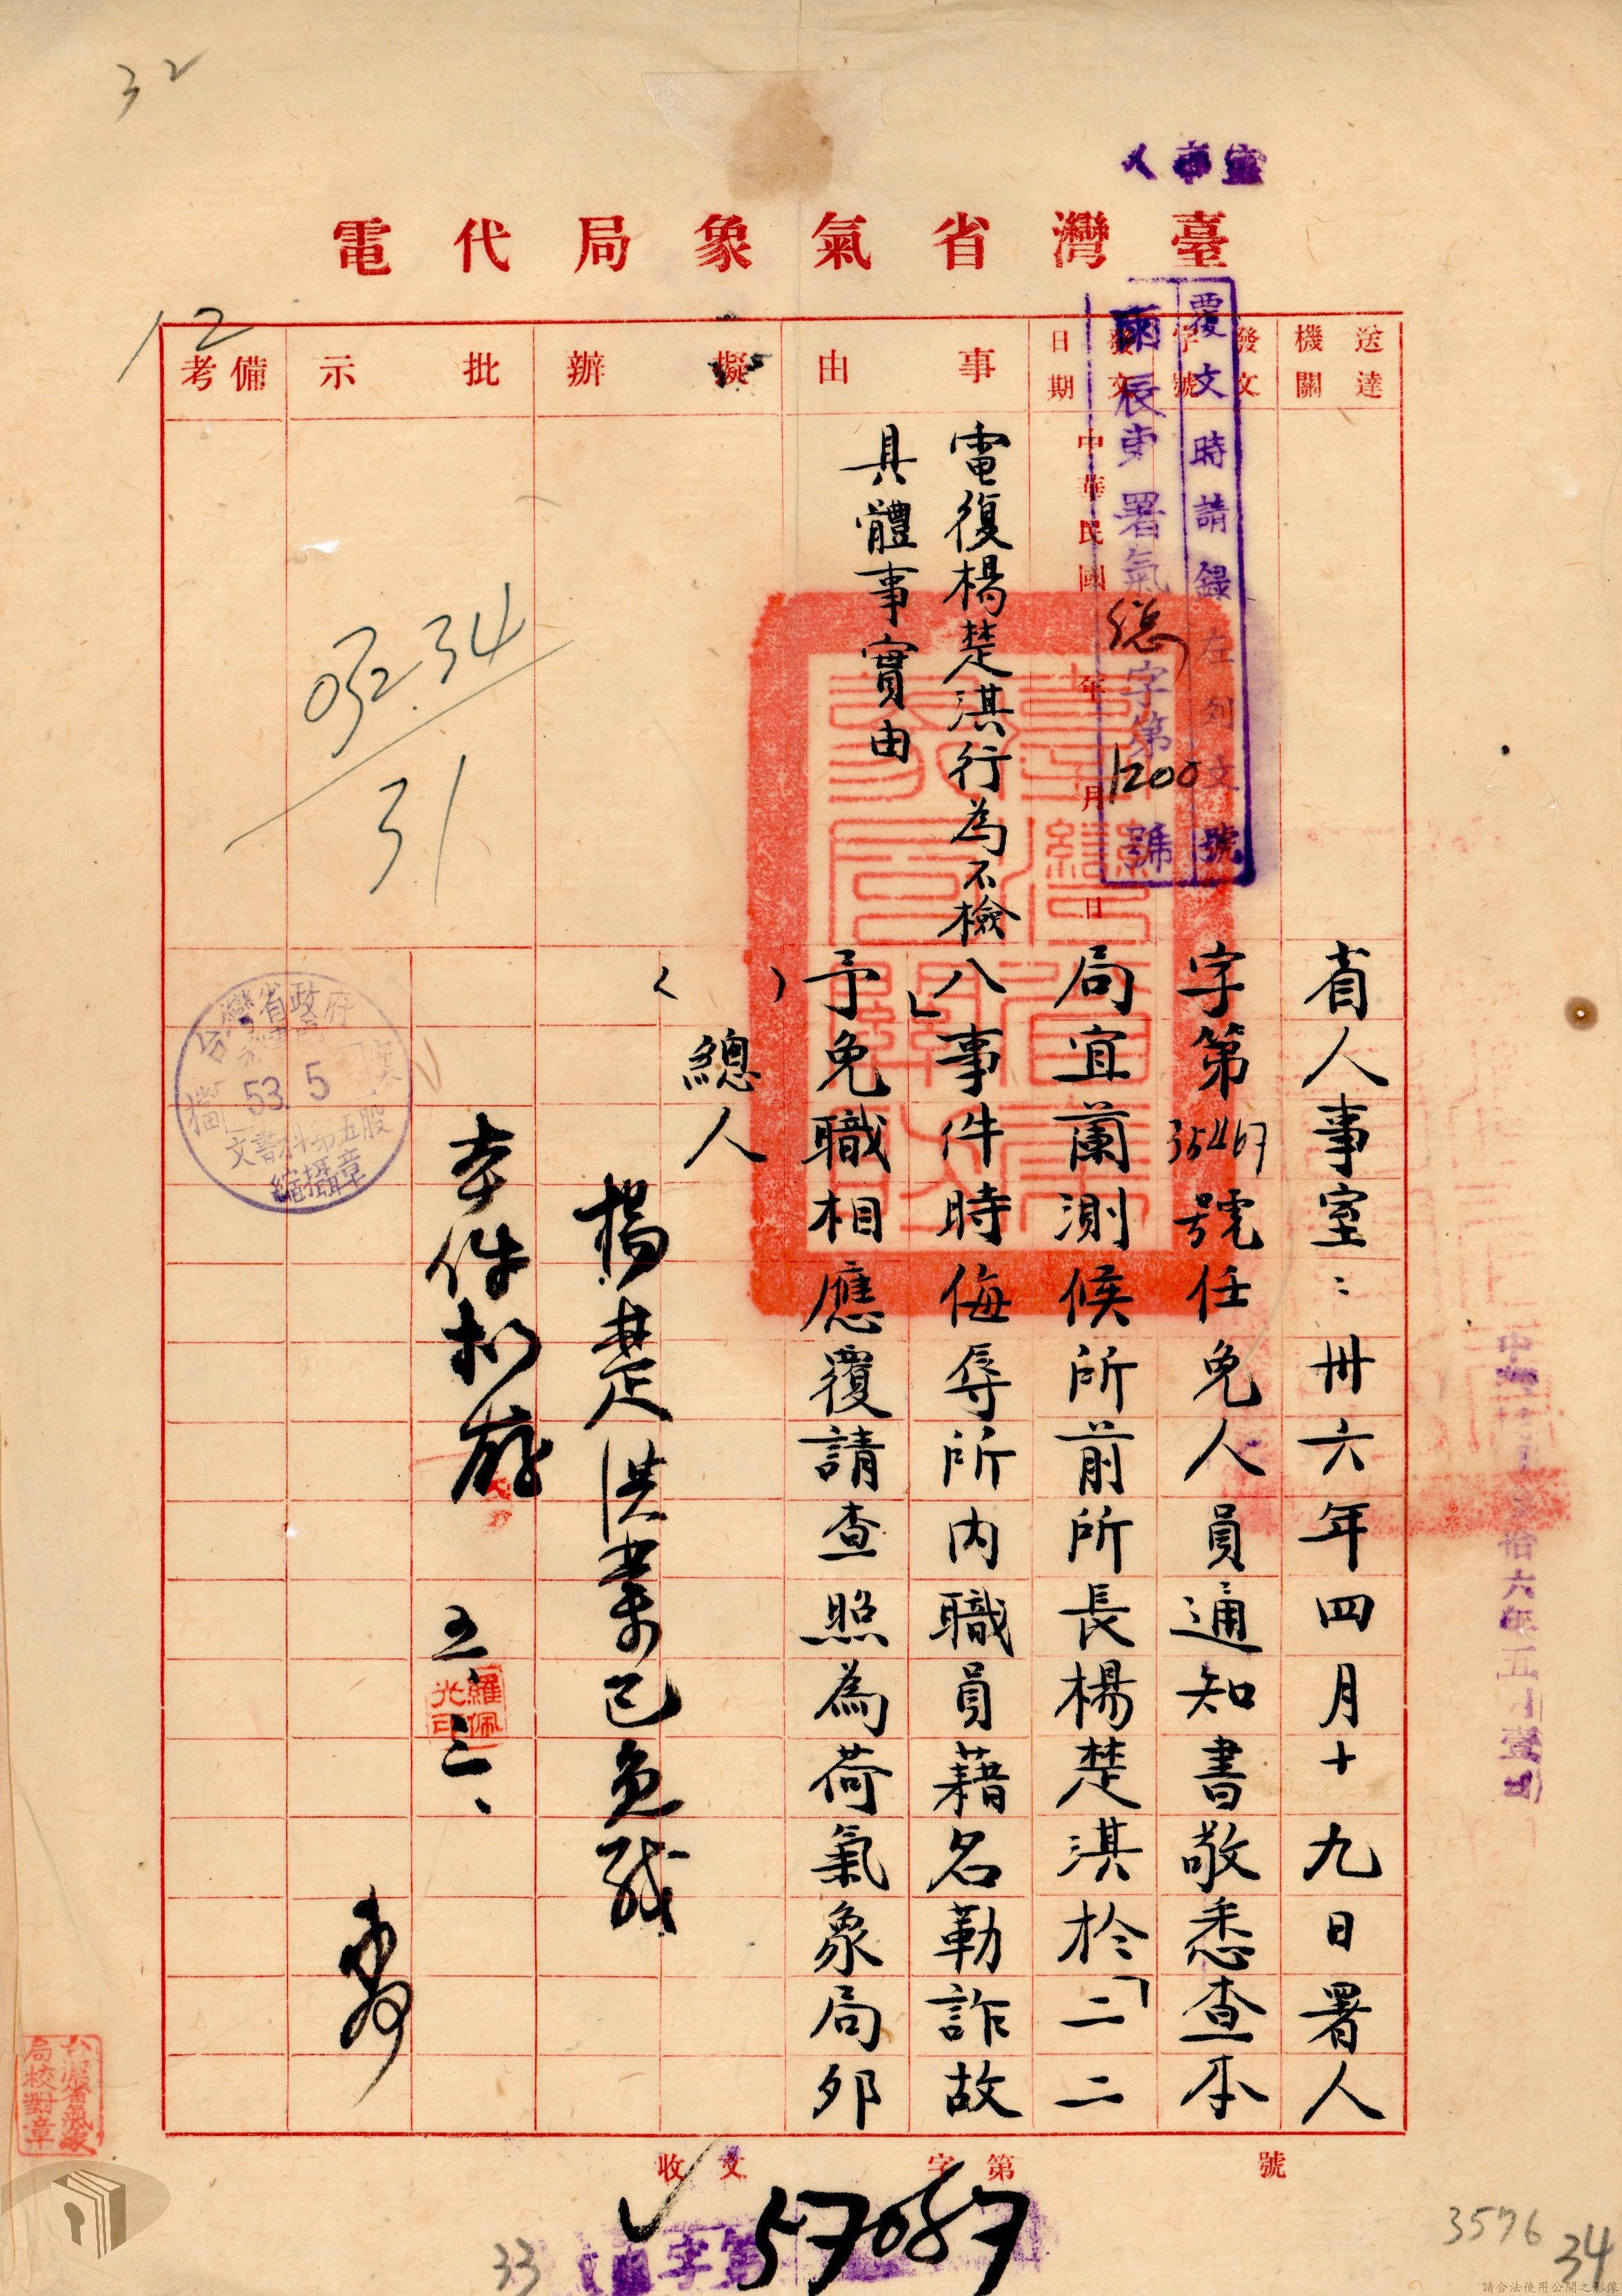 32
人事室
臺灣省氣象局代電
12
送達機關
發文字號
發文日期
事由
擬辦
批示
備考
覆文時請錄左列文號
辰東署氣總字第1200號
中華民國 年 月 日
電復楊楚淇行為不檢
具體事實由
省人事室：卅六年四月十九日署人
字第35467號任免人員通知書敬悉查本
局宜蘭測候所前所長楊楚淇於「二二
八」事件時侮辱所內職員藉名勒詐故
予免職相應覆請查照為荷氣象局卯
（ ）總人
楊楚淇業已免職
本件擬存
五、二、
羅佩光印
052.34
31
台灣省政府
檔 53. 5
文書科第五股
縮攝章
台灣省氣象局校對章
收文 字第 號
57087
33
3576
34
請合法使用公開之影像